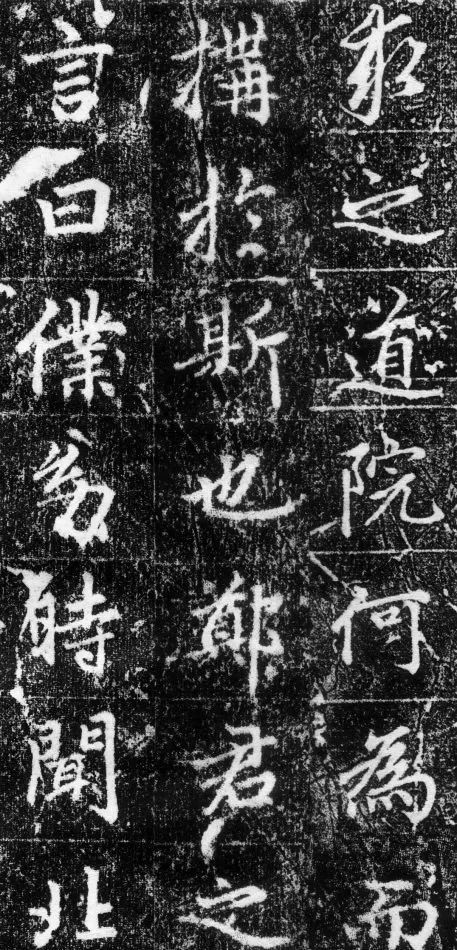 之道院何為而
構於斯也鄭君之
言曰僕幼時聞北